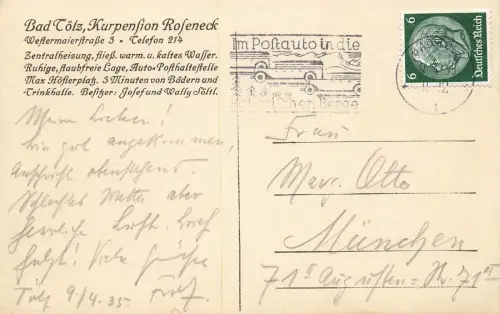 Bad Tölz, Kurpension Roseneck
Westermaierstraße 3 • Telefon 214
Zentralheizung, fließ. warm. u. kaltes Wasser.
Ruhige, staubfreie Lage, Auto-Posthaltestelle
Max Höfler-platz. 3 Minuten von Bädern und
Trinkhalle. Besitzer: Josef und Wally Söltl.
Im Postauto in die
Berge
Deutsches Reich
6 6
Meine Lieben!
Bin gut angekommen,
Anschrift obenstehend.
Schlechtes Wetter aber
herrliche Luft. Brief
folgt! Viele Grüße
Tölz 9/4. 35.
Frau
Marg. Otto
München
71 Augusten-Str. 71